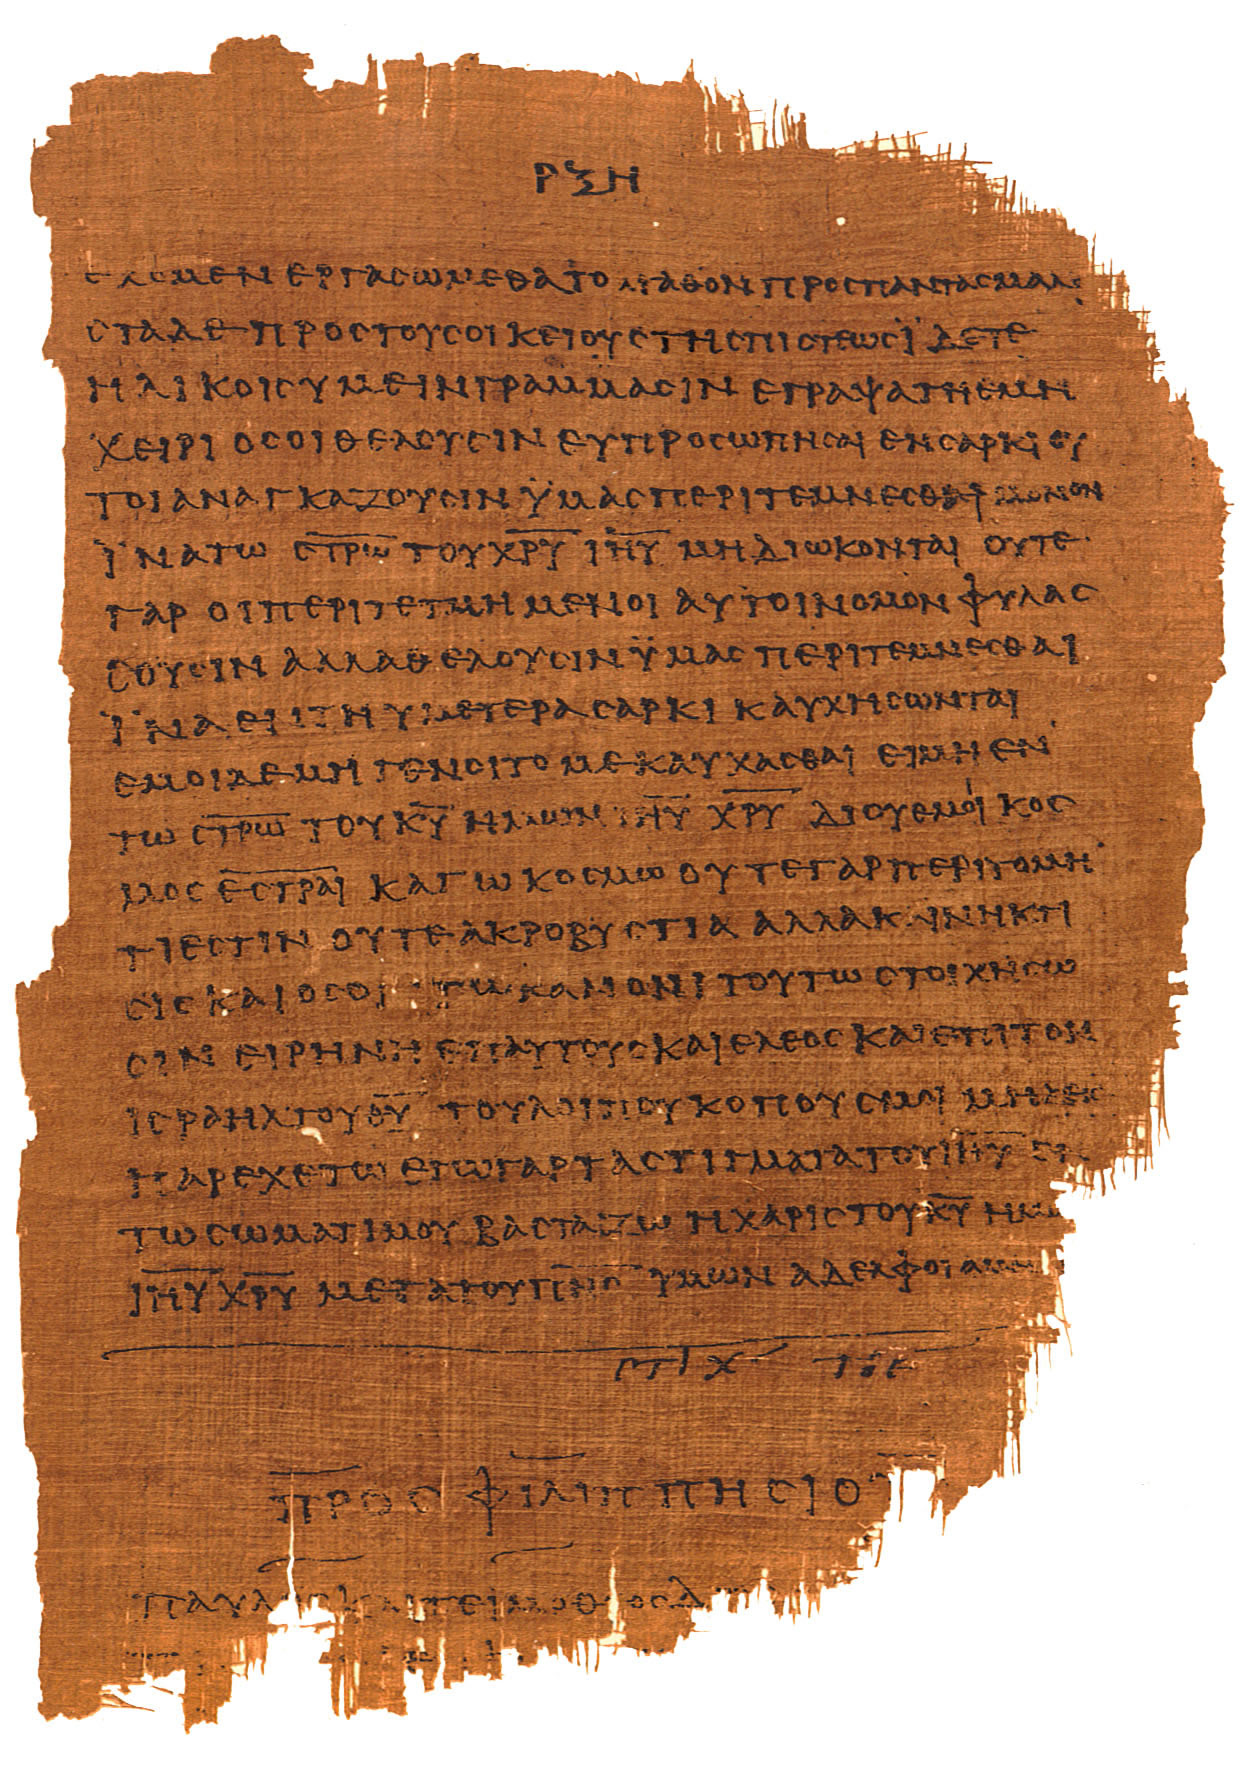 ΡΞΗ
ΕΧΟΜΕΝ ΕΡΓΑСΩΜΕΘΑ ΤΟ ΑΓΑΘΟΝ ΠΡΟС ΠΑΝΤΑС ΜΑΛΙ
СΤΑ ΔΕ ΠΡΟС ΤΟΥС ΟΙΚΕΙΟΥС ΤΗС ΠΙСΤΕΩС ΪΔΕΤΕ
ΗΛΙΚΟΙС ΥΜΕΙΝ ΓΡΑΜΜΑСΙΝ ΕΓΡΑΨΑ ΤΗ ΕΜΗ
ΧΕΙΡΙ ΟСΟΙ ΘΕΛΟΥСΙΝ ΕΥΠΡΟСΩΠΗСΑΙ ΕΝ СΑΡΚΙ ΟΥ
ΤΟΙ ΑΝΑΓΚΑΖΟΥСΙΝ ΫΜΑС ΠΕΡΙΤΕΜΝΕСΘΑΙ ΜΟΝΟΝ
ΪΝΑ ΤΩ С̅Τ̅Ρ̅Ω̅ ΤΟΥ Χ̅Ρ̅Υ̅ Ι̅Η̅Υ̅ ΜΗ ΔΙΩΚΟΝΤΑΙ ΟΥΤΕ
ΓΑΡ ΟΙ ΠΕΡΙΤΕΤΜΗΜΕΝΟΙ ΑΥΤΟΙ ΝΟΜΟΝ ΦΥΛΑС
СΟΥСΙΝ ΑΛΛΑ ΘΕΛΟΥСΙΝ ΫΜΑС ΠΕΡΙΤΕΜΝΕСΘΑΙ
ΪΝΑ ΕΝ ΤΗ ΥΜΕΤΕΡΑ СΑΡΚΙ ΚΑΥΧΗСΩΝΤΑΙ
ΕΜΟΙ ΔΕ ΜΗ ΓΕΝΟΙΤΟ ΜΕ ΚΑΥΧΑСΘΑΙ ΕΙ ΜΗ ΕΝ
ΤΩ С̅Τ̅Ρ̅Ω̅ ΤΟΥ Κ̅Υ̅ ΗΜΩΝ Ι̅Η̅Υ̅ Χ̅Ρ̅Υ̅ ΔΙ ΟΥ ΕΜΟΙ ΚΟС
ΜΟС Ε̅С̅Τ̅Ρ̅Α̅Ι̅ ΚΑΓΩ ΚΟСΜΩ ΟΥΤΕ ΓΑΡ ΠΕΡΙΤΟΜΗ
ΤΙ ΕСΤΙΝ ΟΥΤΕ ΑΚΡΟΒΥСΤΙΑ ΑΛΛΑ ΚΑΙΝΗ ΚΤΙ
СΙС ΚΑΙ ΟСΟΙ ΤΩ ΚΑΝΟΝΙ ΤΟΥΤΩ СΤΟΙΧΗСΩ
СΙΝ ΕΙΡΗΝΗ ΕΠ ΑΥΤΟΥС ΚΑΙ ΕΛΕΟС ΚΑΙ ΕΠΙ ΤΟΝ
ΙСΡΑΗΛ ΤΟΥ Θ̅Υ̅ ΤΟΥ ΛΟΙΠΟΥ ΚΟΠΟΥС ΜΟΙ ΜΗΔΕΙС
ΠΑΡΕΧΕΤΩ ΕΓΩ ΓΑΡ ΤΑ СΤΙΓΜΑΤΑ ΤΟΥ Ι̅Η̅Υ̅ ΕΝ
ΤΩ СΩΜΑΤΙ ΜΟΥ ΒΑСΤΑΖΩ Η ΧΑΡΙС ΤΟΥ Κ̅Υ̅ ΗΜΩ
Ι̅Η̅Υ̅ Χ̅Ρ̅Υ̅ ΜΕΤΑ ΤΟΥ Π̅Ν̅С̅ ΥΜΩΝ ΑΔΕΛΦΟΙ ΑΜΗΝ
СΤΙΧ ΤΟΕ
ΠΡΟС ΦΙΛΙΠΠΗСΙΟΥ
ΠΑΥΛΟС ΚΑΙ ΤΕΙΜΟΘΕΟС Δ